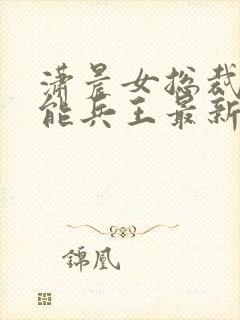 潇晨女总裁
能兵王最新
锦凰